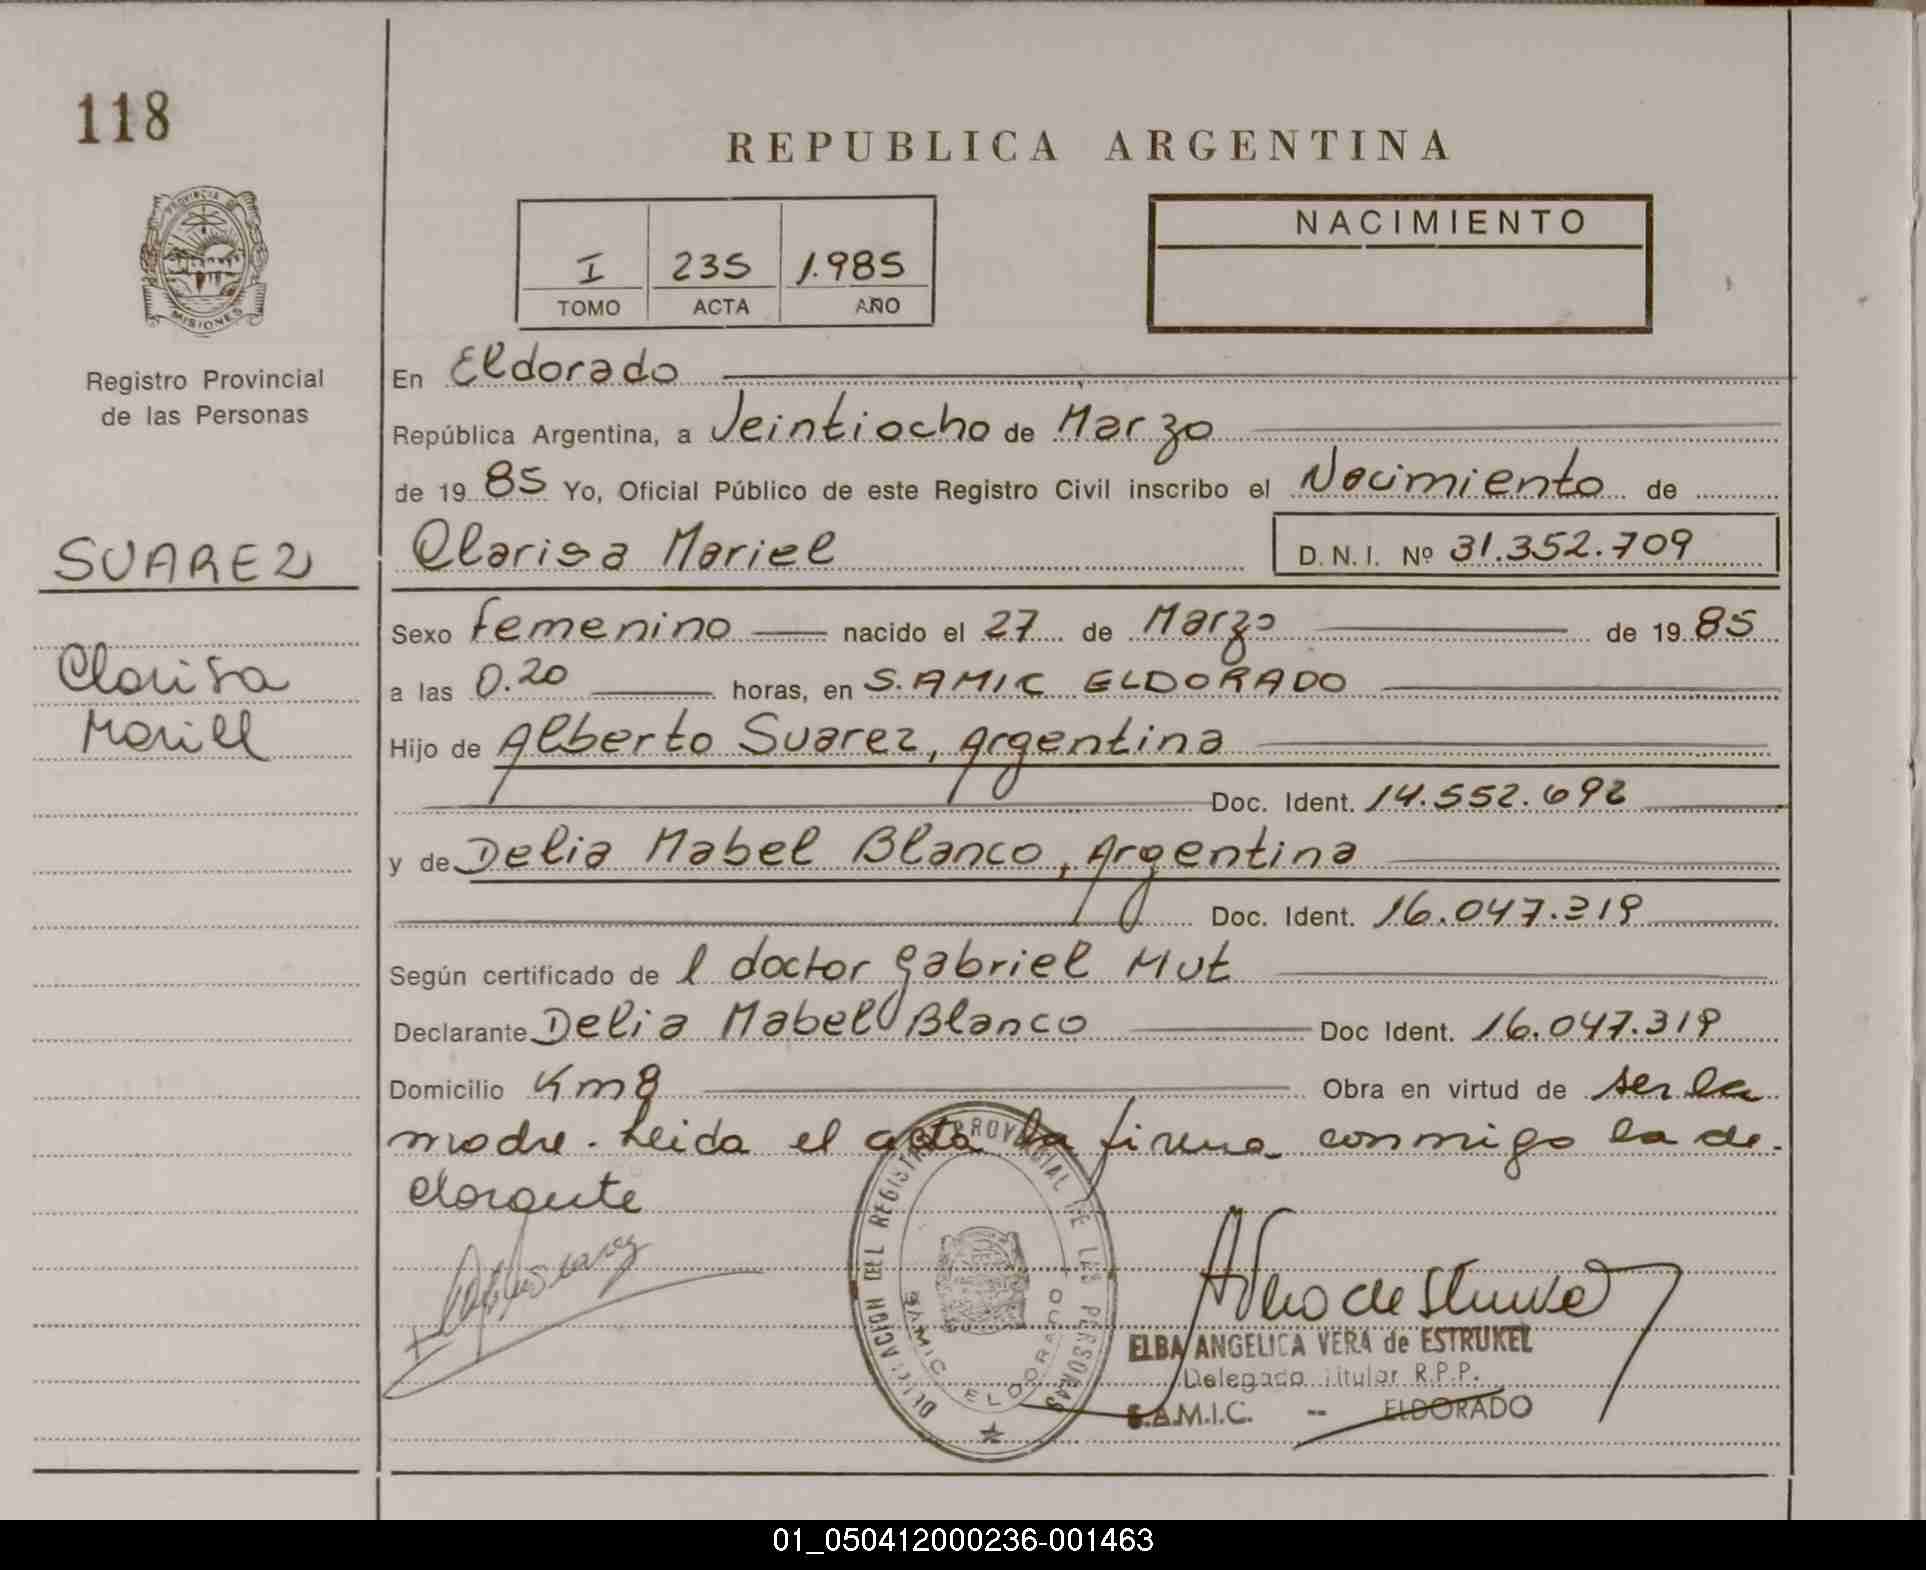 118
REPUBLICA ARGENTINA
PROVINCIA DE
MISIONES
Registro Provincial
de las Personas
I 235 1.985
TOMO ACTA AÑO
NACIMIENTO
En Eldorado
República Argentina, a Veintiocho de Marzo
de 19 85 Yo, Oficial Público de este Registro Civil inscribo el Nacimiento de
SUAREZ
Clarisa Mariel D.N.I. Nº 31.352.709
Sexo femenino nacido el 27 de Marzo de 19 85
Clarisa
a las 0.20 horas, en S.AMIC ELDORADO
Mariel
Hijo de Alberto Suarez, Argentina
Doc. Ident. 14.552.692
y de Delia Mabel Blanco, Argentina
Doc. Ident. 16.047.319
Según certificado de l doctor Gabriel Mut
Declarante Delia Mabel Blanco Doc Ident. 16.047.319
Domicilio Km 8 Obra en virtud de ser la
madre. Leida el acta la firma conmigo la de-
clarante
DELEGACION DEL REGISTRO PROVINCIAL DE LAS PERSONAS
SAMIC ELDORADO
ELBA ANGELICA VERA de ESTRUKEL
Delegada Titular R.P.P.
S.A.M.I.C. -- ELDORADO
01_050412000236-001463